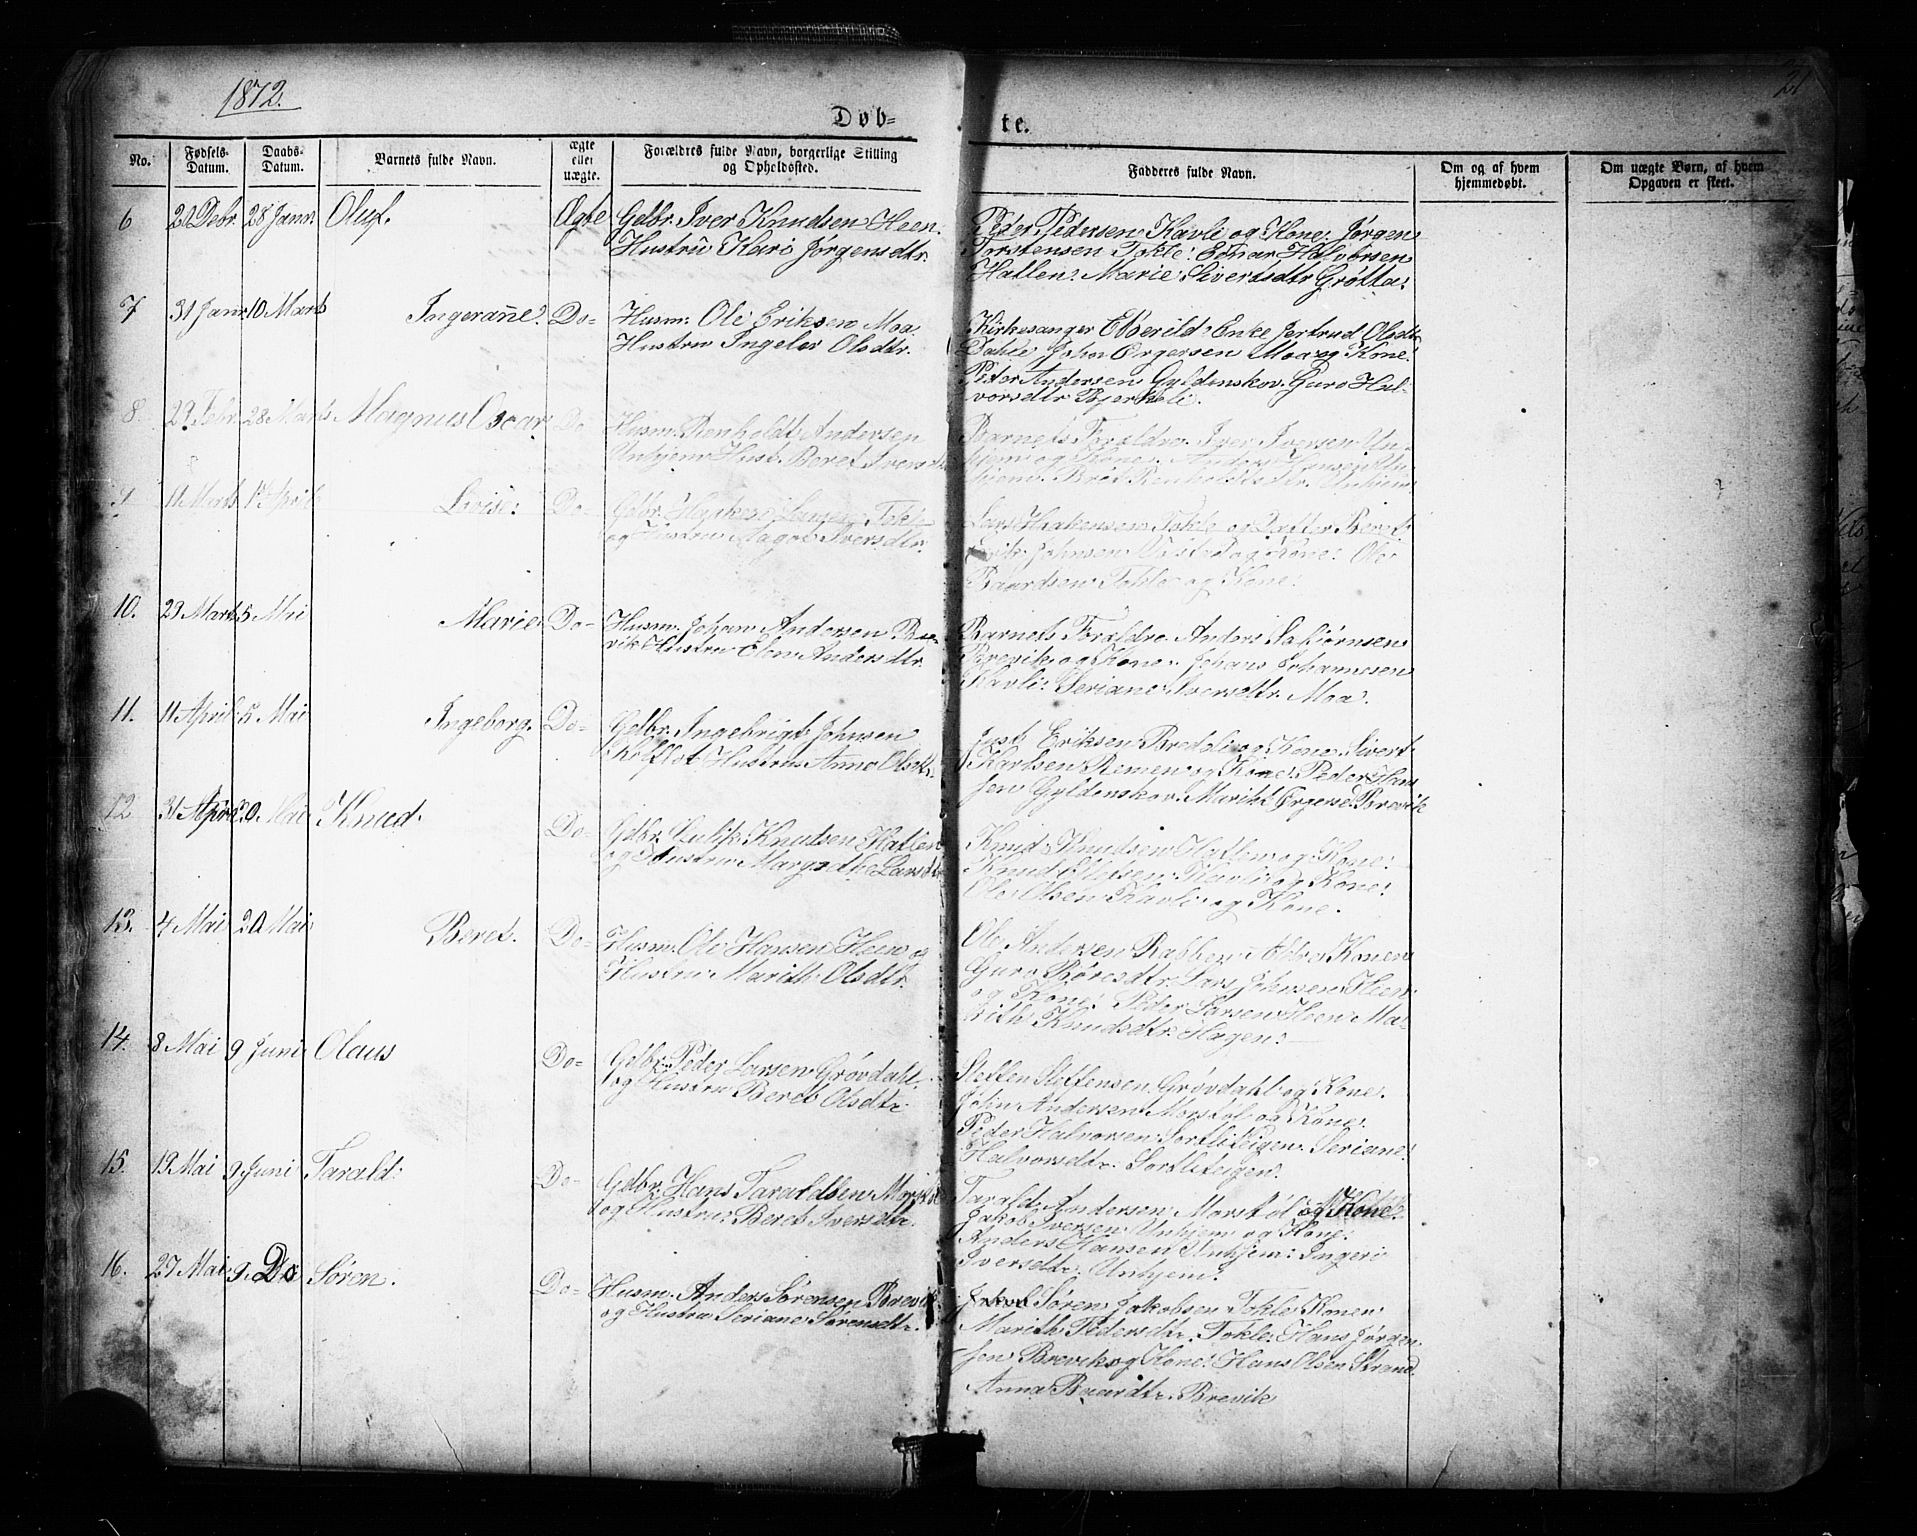 1872.
21
Døb-
te.
No.
Fødsels-
Datum.
Daabs-
Datum.
Barnets fulde Navn.
ægte
eller
uægte.
Forældres fulde Navn, borgerlige Stilling
og Opholdssted.
Fadderes fulde Navn.
Om og af hvem
hjemmedøbt.
Om uægte Børn, af hvem
Opgaven er skeet.
6 28 Janr. Oluf. Ægte Gdbr. Iver Knudsen Heen.
Hustru Kari Jørgensdtr.
Peder Pedersen Kavli og Kone: Jørgen
Torstensen Tokle: Halvorsen
Hatlen: Marie Sivertsdtr Grøtta:
7 31 Janr 10 Marts Ingeranne. Do- Husm: Ole Eriksen Moa
Hustru Ingebor Olsdtr.
Kirkesanger Enke Jertrud Olsdtr
John Ergersen Moa og Kone:
Peder Andersen Gyldenskov. Guro Hal-
vorsdtr Bjerkeli.
8. 29 Febr. 28 Marts Magnus Oscar Do Husm: Renholdt Andersen
Unhjem Hust. Beret Iversdtr
Barnets Forældre. Iver Iversen Un-
hjem og Kone: Anders Hansen Un-
hjem: Renholdtsdtr. Unhjem:
9 11 Marts April Lovise: Do- Gdbr. Haaken Larsen Tokle
og Hustru Magot Iversdtr.
Lars Haakensen Tokle og Datter Beret
Erik Johnsen og Kone: Ole
Baardsen Tokle og Kone:
10. 29 Marts 5 Mai Marie. Do- Husm: Johan Andersen Bre-
vik Hustru Elen Andersdtr.
Barnets Forældre Anders
Brevik og Kone: Johans Johannesen
Kavli: Seriane Iversdtr. Moa.
11. 11 April 5 Mai Ingeborg. Do- Gdbr. Ingebrigt Johnsen
Skiflot Hustru Anne Olsdtr
Just Eriksen Bredeli og Kone Sivert
Karlsen Remen og Kone: Peder Han
sen Gyldenskov. Marith Ergersd. Brevik
12 April 20 Mai Knud. Do- Gdbr. Knutsen Hatlen
og Hustru Margrethe Larsdtr
Knud Knudsen Hatlen og Kone:
Knud Kavli og Kone:
Ole Olsen Kavli og Kone.
13. 4 Mai 20 Mai Beret. Do- Husm. Ole Hansen Heen og
Hustru: Marith Olsdtr.
Ole Andersen Rabben Konen
Guro Lars Johnsen Heen
og Kone: Peder Larsen Heen Ma-
rith Knudsdtr. Hagen:
14. 8 Mai 9 Juni Olaus Do- Gdbr. Peder Larsen Grøvdahl
og Hustru Beret Olsdtr.
Steffen Steffensen Grøvdahl og Kone.
John Andersen Morstøl og Kone:
Peder Halvorsen Sortliteigen Seriane:
Halvorsdtr. Sortliteigen:
15. 19 Mai 9 Juni Tarald: Do- Gdbr. Hans Taraldsen Morstøl
og Hustru: Beret Iversdtr.
Tarald Andersen Morstøl og Kone:
Jakob Iversen Unhjem og Kone:
Anders Hansen Unhjem: Ingeri
Iversdtr. Unhjem:
16. 27 Mai 9. Do Søren. Do- Husm. Anders Sørensen Brevik
og Hustru Seriane Sørensdtr.
Søren Jakobsen Tokle Konen
Marith Pedersdtr. Tokle: Hans Jørgen
sen Brevik og Kone: Hans Olsen Strand
Anna Baardtr. Brevik